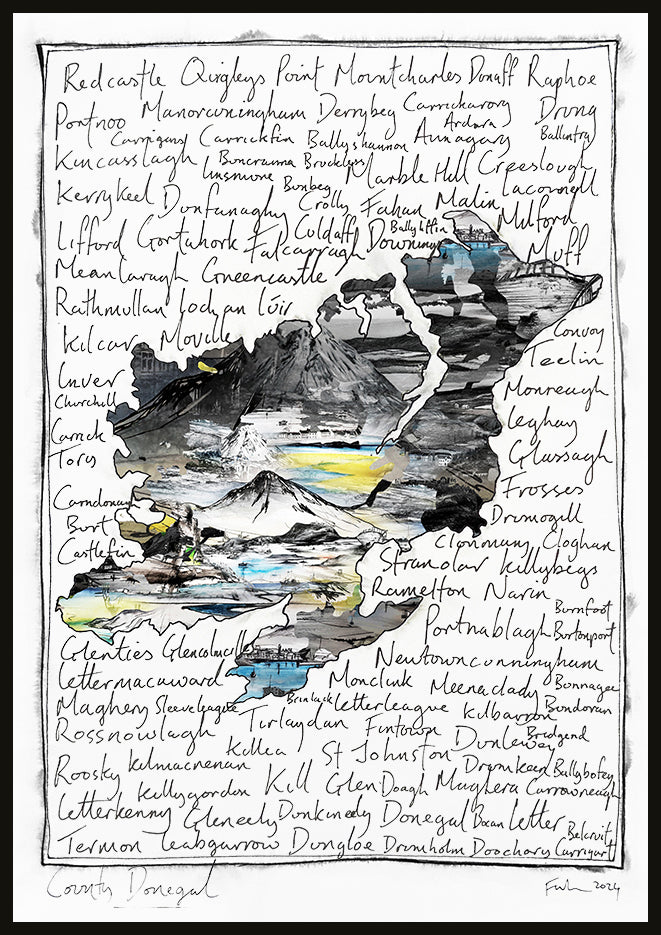 Redcastle Quigleys Point Mountcharles Donaff Raphoe
Portnoo Manorcunningham Derrybeg Carrickarory Drung
Ardara
Carrigans Carrickfin Ballyshannon Annagary Ballintra
Kincasslagh Buncranna Bruckless Marble Hill Creeslough
Linsmore Bunbeg Laconnell
Kerrykeel Dunfanaghy Crolly Fahan Malin Milford
Lifford Gortahork Falcarragh Culdaff Downings Ballyliffin Muff
Meanlaragh Greencastle
Rathmullan Loch an Iúir
Kilcar Moville
Convoy
Teelin
Inver
Churchill
Monreagh
Carrick
Leghay
Tory
Glassagh
Frosses
Carndonagh
Drumogill
Burt
Clonmany Cloghan
Castlefin
Stranolar Killybegs
Ramelton Narin
Burnfoot
Portnablagh Burtonport
Glenties Glencolmcille
Newtowncunningham
Lettermacaward Monclink Meenaclady Bunnagee
Maghery Sleeveleague Brinlack Letterleague Kilbarron Bundoran
Rossnowlagh Tirlaydan Fintown Dunlewey Bridgend
Killea St Johnston
Roosky Kilmacrenan Drumkeen Ballybofey
Killygordon Kill Glen Doagh Maghera Currowreagh
Letterkenny Gleneely Dunkineely Donegal Bun Letter Belcruit
Termon Leabgarrow Dungloe Drumholm Doochary Carrigart
County Donegal
2024